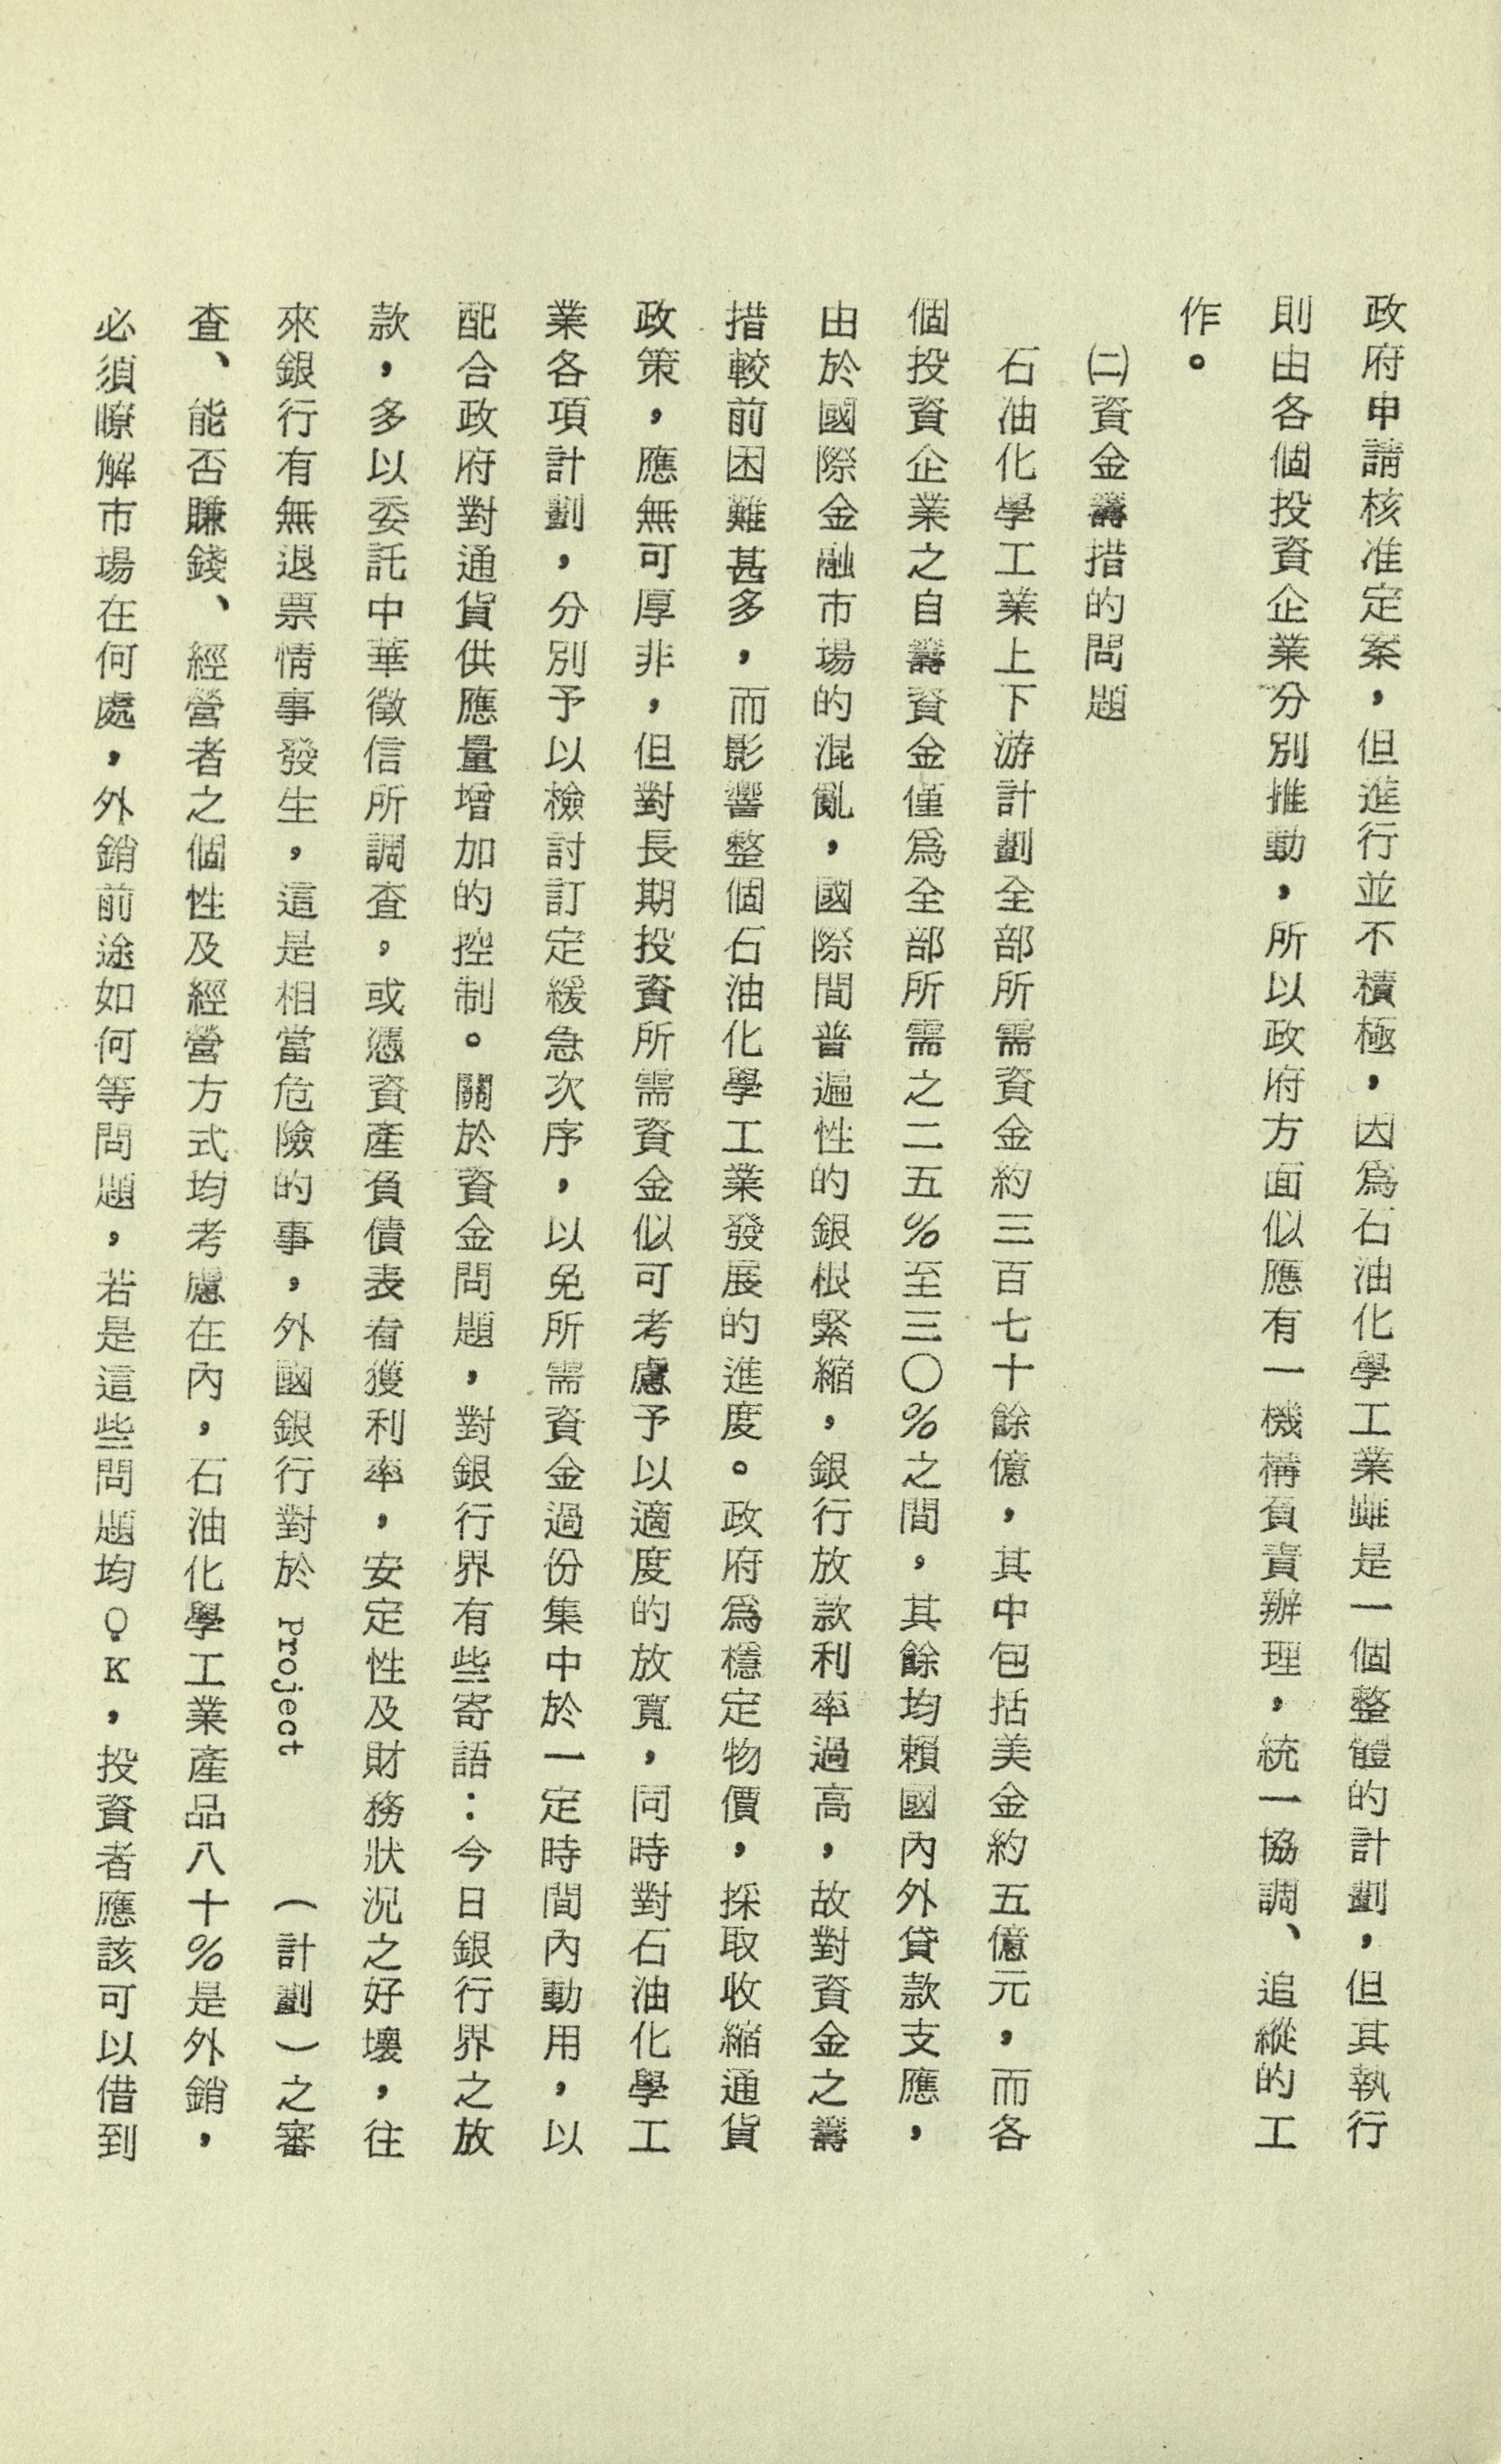 政府申請核准定案，但進行並不積極，因爲石油化學工業雖是一個整體的計劃，但其執行
則由各個投資企業分別推動，所以政府方面似應有一機構負責辦理，統一協調、追縱的工
作。
㈡資金籌措的問題
石油化學工業上下游計劃全部所需資金約三百七十餘億，其中包括美金約五億元，而各
個投資企業之自籌資金僅爲全部所需之二五％至三〇％之間，其餘均賴國內外貸款支應，
由於國際金融市場的混亂，國際間普遍性的銀根緊縮，銀行放款利率過高，故對資金之籌
措較前困難甚多，而影響整個石油化學工業發展的進度。政府爲穩定物價，採取收縮通貨
政策，應無可厚非，但對長期投資所需資金似可考慮予以適度的放寬，同時對石油化學工
業各項計劃，分別予以檢討訂定緩急次序，以免所需資金過份集中於一定時間內動用，以
配合政府對通貨供應量增加的控制。關於資金問題，對銀行界有些寄語：今日銀行界之放
款，多以委託中華徵信所調查，或憑資產負債表看獲利率，安定性及財務狀況之好壞，往
來銀行有無退票情事發生，這是相當危險的事，外國銀行對於 Project （計劃）之審
查、能否賺錢、經營者之個性及經營方式均考慮在內，石油化學工業產品八十％是外銷，
必須暸解市場在何處，外銷前途如何等問題，若是這些問題均O.K，投資者應該可以借到